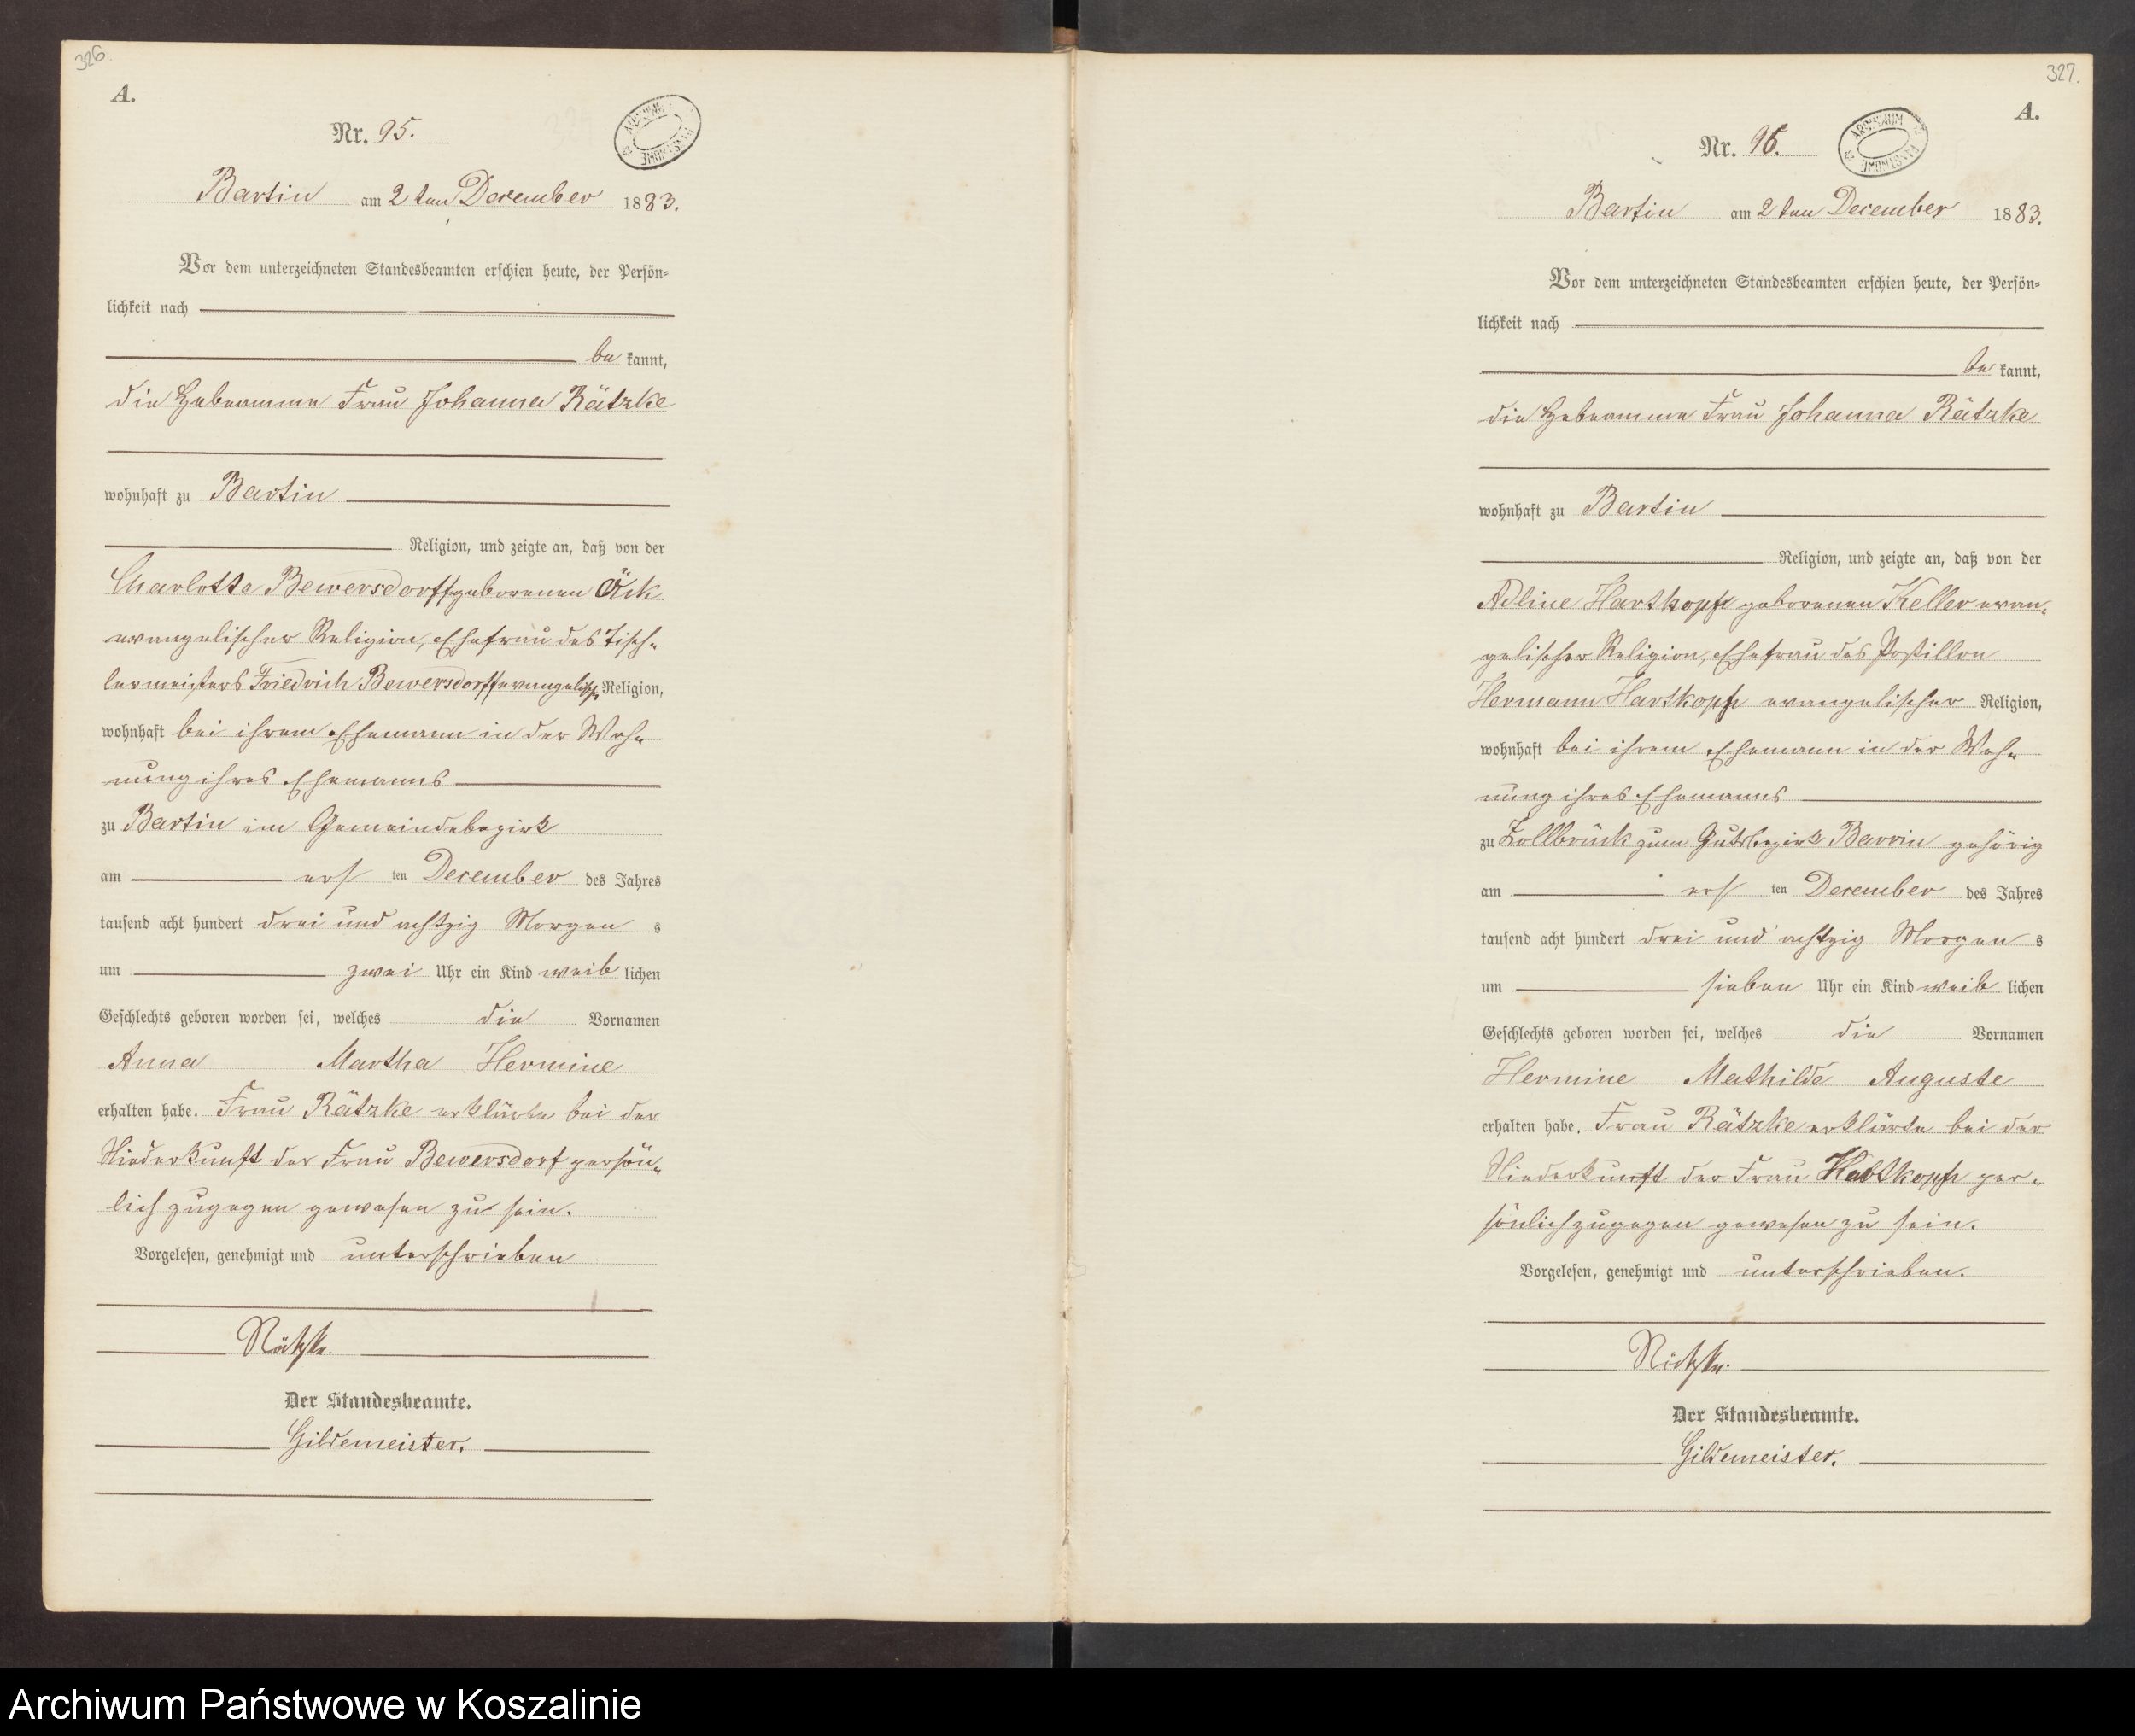 326.
A.
Nr. 95.
Bartin am 2ten December 1883.
Vor dem unterzeichneten Standesbeamten erschien heute, der Persön=
lichkeit nach
be kannt,
die Hebeamme Frau Johanna Rätzke
wohnhaft zu Bartin
Religion, und zeigte an, daß von der
Charlotte Bewersdorff geborenen
evangelischer Religion, Ehefrau des Tisch=
lermeisters Friedrich Bewersdorff evangelisch Religion,
wohnhaft bei ihrem Ehemann in der Woh=
nung ihres Ehemanns
zu Bartin im Gemeindebezirk
am ersten December des Jahres
tausend acht hundert drei und achtzig Morgen s
um zwei Uhr ein Kind weib lichen
Geschlechts geboren worden sei, welches die Vornamen
Anna Martha Hermine
erhalten habe. Frau Rätzke erklärte bei der
Niederkunft der Frau Bewersdorf persön=
lich zugegen gewesen zu sein.
Vorgelesen, genehmigt und unterschrieben
Rätzke.
Der Standesbeamte.
Gildemeister.
327.
A.
Nr. 96.
ARCHIWUM
Bartin am 2ten December 1883.
Vor dem unterzeichneten Standesbeamten erschien heute, der Persön=
lichkeit nach
be kannt,
die Hebeamme Frau Johanna Rätzke
wohnhaft zu Bartin
Religion, und zeigte an, daß von der
Adline Hartkopf geborenen Keller evan=
gelischer Religion, Ehefrau des Postillon
Hermann Hartkopf evangelischer Religion,
wohnhaft bei ihrem Ehemann in der Woh=
nung ihres Ehemanns
zu Zollbrück zum Gutsbezirk Barvin gehörig
am ersten December des Jahres
tausend acht hundert drei und achtzig Morgen s
um sieben Uhr ein Kind weib lichen
Geschlechts geboren worden sei, welches die Vornamen
Hermine Mathilde Auguste
erhalten habe. Frau Rätzke erklärte bei der
Niederkunft der Frau Hartkopf per=
sönlich zugegen gewesen zu sein.
Vorgelesen, genehmigt und unterschrieben.
Rätzke.
Der Standesbeamte.
Gildemeister.
Archiwum Państwowe w Koszalinie